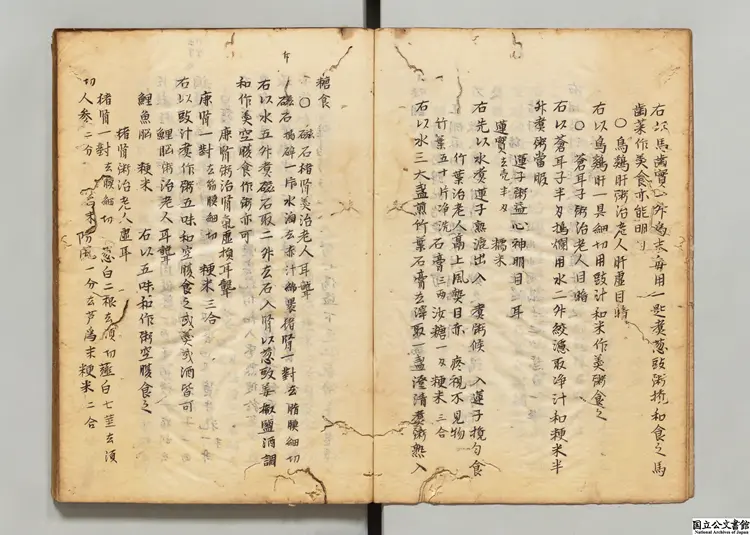 右以馬齒實一升為末每用一匙煮葱豉粥攪和食之馬
齒菜作羹食亦能明目
○烏鷄肝粥治老人肝虛目暗
右以烏鷄肝一具細切用豉汁和米作羹粥食之
○蒼耳子粥治老人目暗
右以蒼耳子半兩搗爛用水二升絞濾取淨汁和粳米半
升煮粥當服
蓮子粥益心神明目 耳
蓮實去皮半兩 糯米
右先以水煮蓮子熟漉出入 煮粥候 入蓮子攪勻食
竹葉治老人膈上風熱目赤 疼視不見物
竹葉五十片淨洗 石膏三兩 沙糖一兩 粳米三合
右以水三大盞煎竹葉石膏去滓取一盞澄清煮粥熟入
糖食
○磁石猪腎羹治老人耳聾
磁石搗碎一斤水淘去赤汁綿裹猪腎一對去脂膜細切
右以水五升煮磁石取二升去石入腎以葱豉姜椒鹽酒調
和作羹空腹食作粥亦可
鹿腎粥治腎氣虛損耳聾
鹿腎一對去脂膜細切 粳米三合
右以豉汁煮作粥五味和空腹食之或羹或酒皆可
鯉腦粥治老人耳聾
鯉魚腦 粳米 右以五味和作粥空腹食之
猪腎粥治老人虛耳
猪腎一對去膜細切 葱白二根去須切薤白七莖去須
切人參二分 防風一分去芦為末粳米二合
国立公文書館
National Archives of Japan